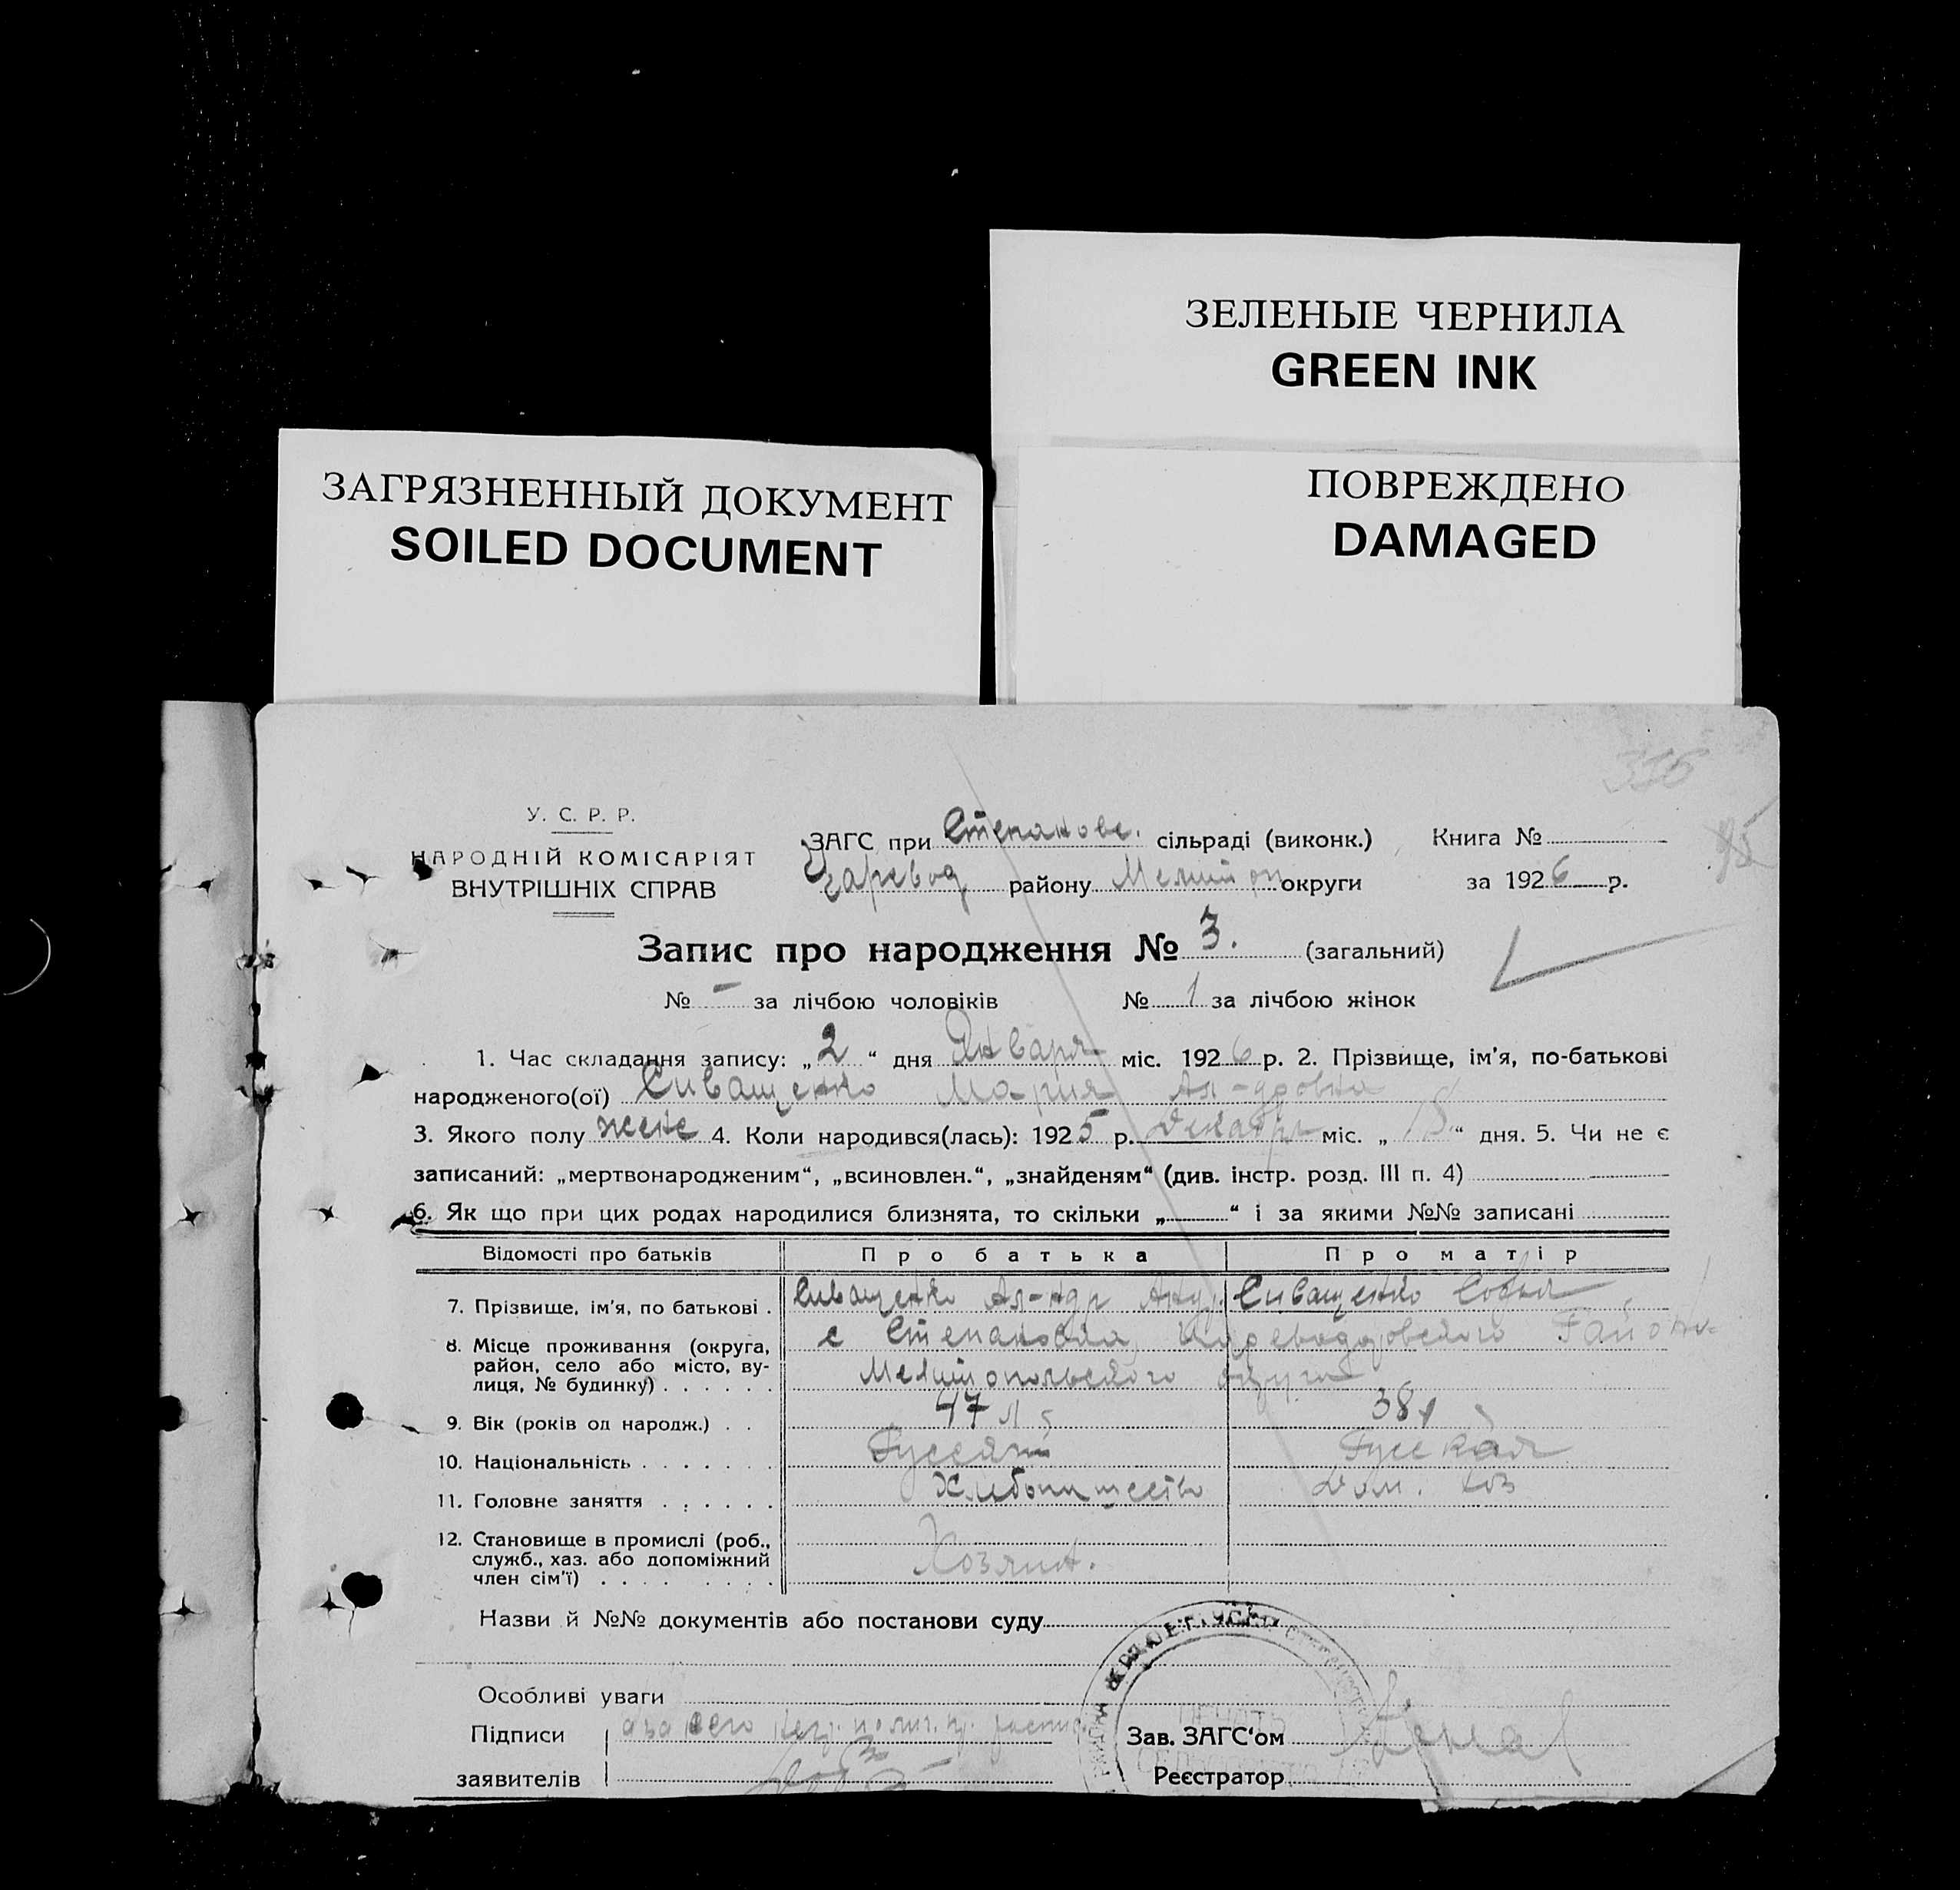 ЗЕЛЕНЫЕ ЧЕРНИЛА
GREEN INK
ЗАГРЯЗНЕННЫЙ ДОКУМЕНТ
SOILED DOCUMENT
ПОВРЕЖДЕНО
DAMAGED
У. С. Р. Р.
НАРОДНІЙ КОМІСАРІЯТ
ВНУТРІШНІХ СПРАВ
ЗАГС при Степановс. сільраді (виконк.) Книга №
Царевод району Мелитоп округи за 1926 р.
Запис про народження № 3. (загальний)
№ – за лічбою чоловіків № 1 за лічбою жінок
1. Час складання запису: „2“ дня Января міс. 1926 р. 2. Прізвище, ім'я, по-батькові
народженого(ої) Сиващенко Мария Ал-дровна
3. Якого полу жене 4. Коли народився(лась): 1925 р. Декабря міс. „ “ дня. 5. Чи не є
записаний: „мертвонародженим“, „всиновлен.“, „знайденям“ (див. інстр. розд. III п. 4)
6. Як що при цих родах народилися близнята, то скільки „ “ і за якими №№ записані
Відомості про батьків Про батька Про матір
7. Прізвище, ім'я, по батькові . Сиващенко Ал-ндр Анд. Сиващенко Софья
8. Місце проживання (округа, район, село або місто, вулиця, № будинку) . . . . . . с Степановка, Цареводаровского Района
Мелитопольского округа
9. Вік (років од народж.) . . 47 л 38
10. Національність . . . . . . . Русский Русская
11. Головне заняття . . . . . . Хлебопашество Дом. хоз
12. Становище в промислі (роб., служб., хаз. або допоміжний член сім'ї) . . . . . . . . Хозяин.
Назви й №№ документів або постанови суду
Особливі уваги
Підписи
заявителів
Зав. ЗАГС'ом
Реєстратор